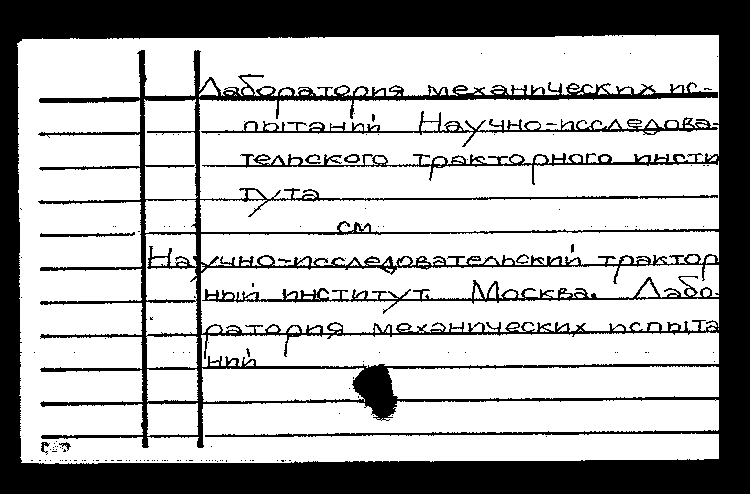 Лаборатория механических ис-
пытаний Научно-исследова-
тельского тракторного инсти
тута
см.
Научно-исследовательский трактор
ный институт. Москва. Лабо-
ратория механических испыта
ний